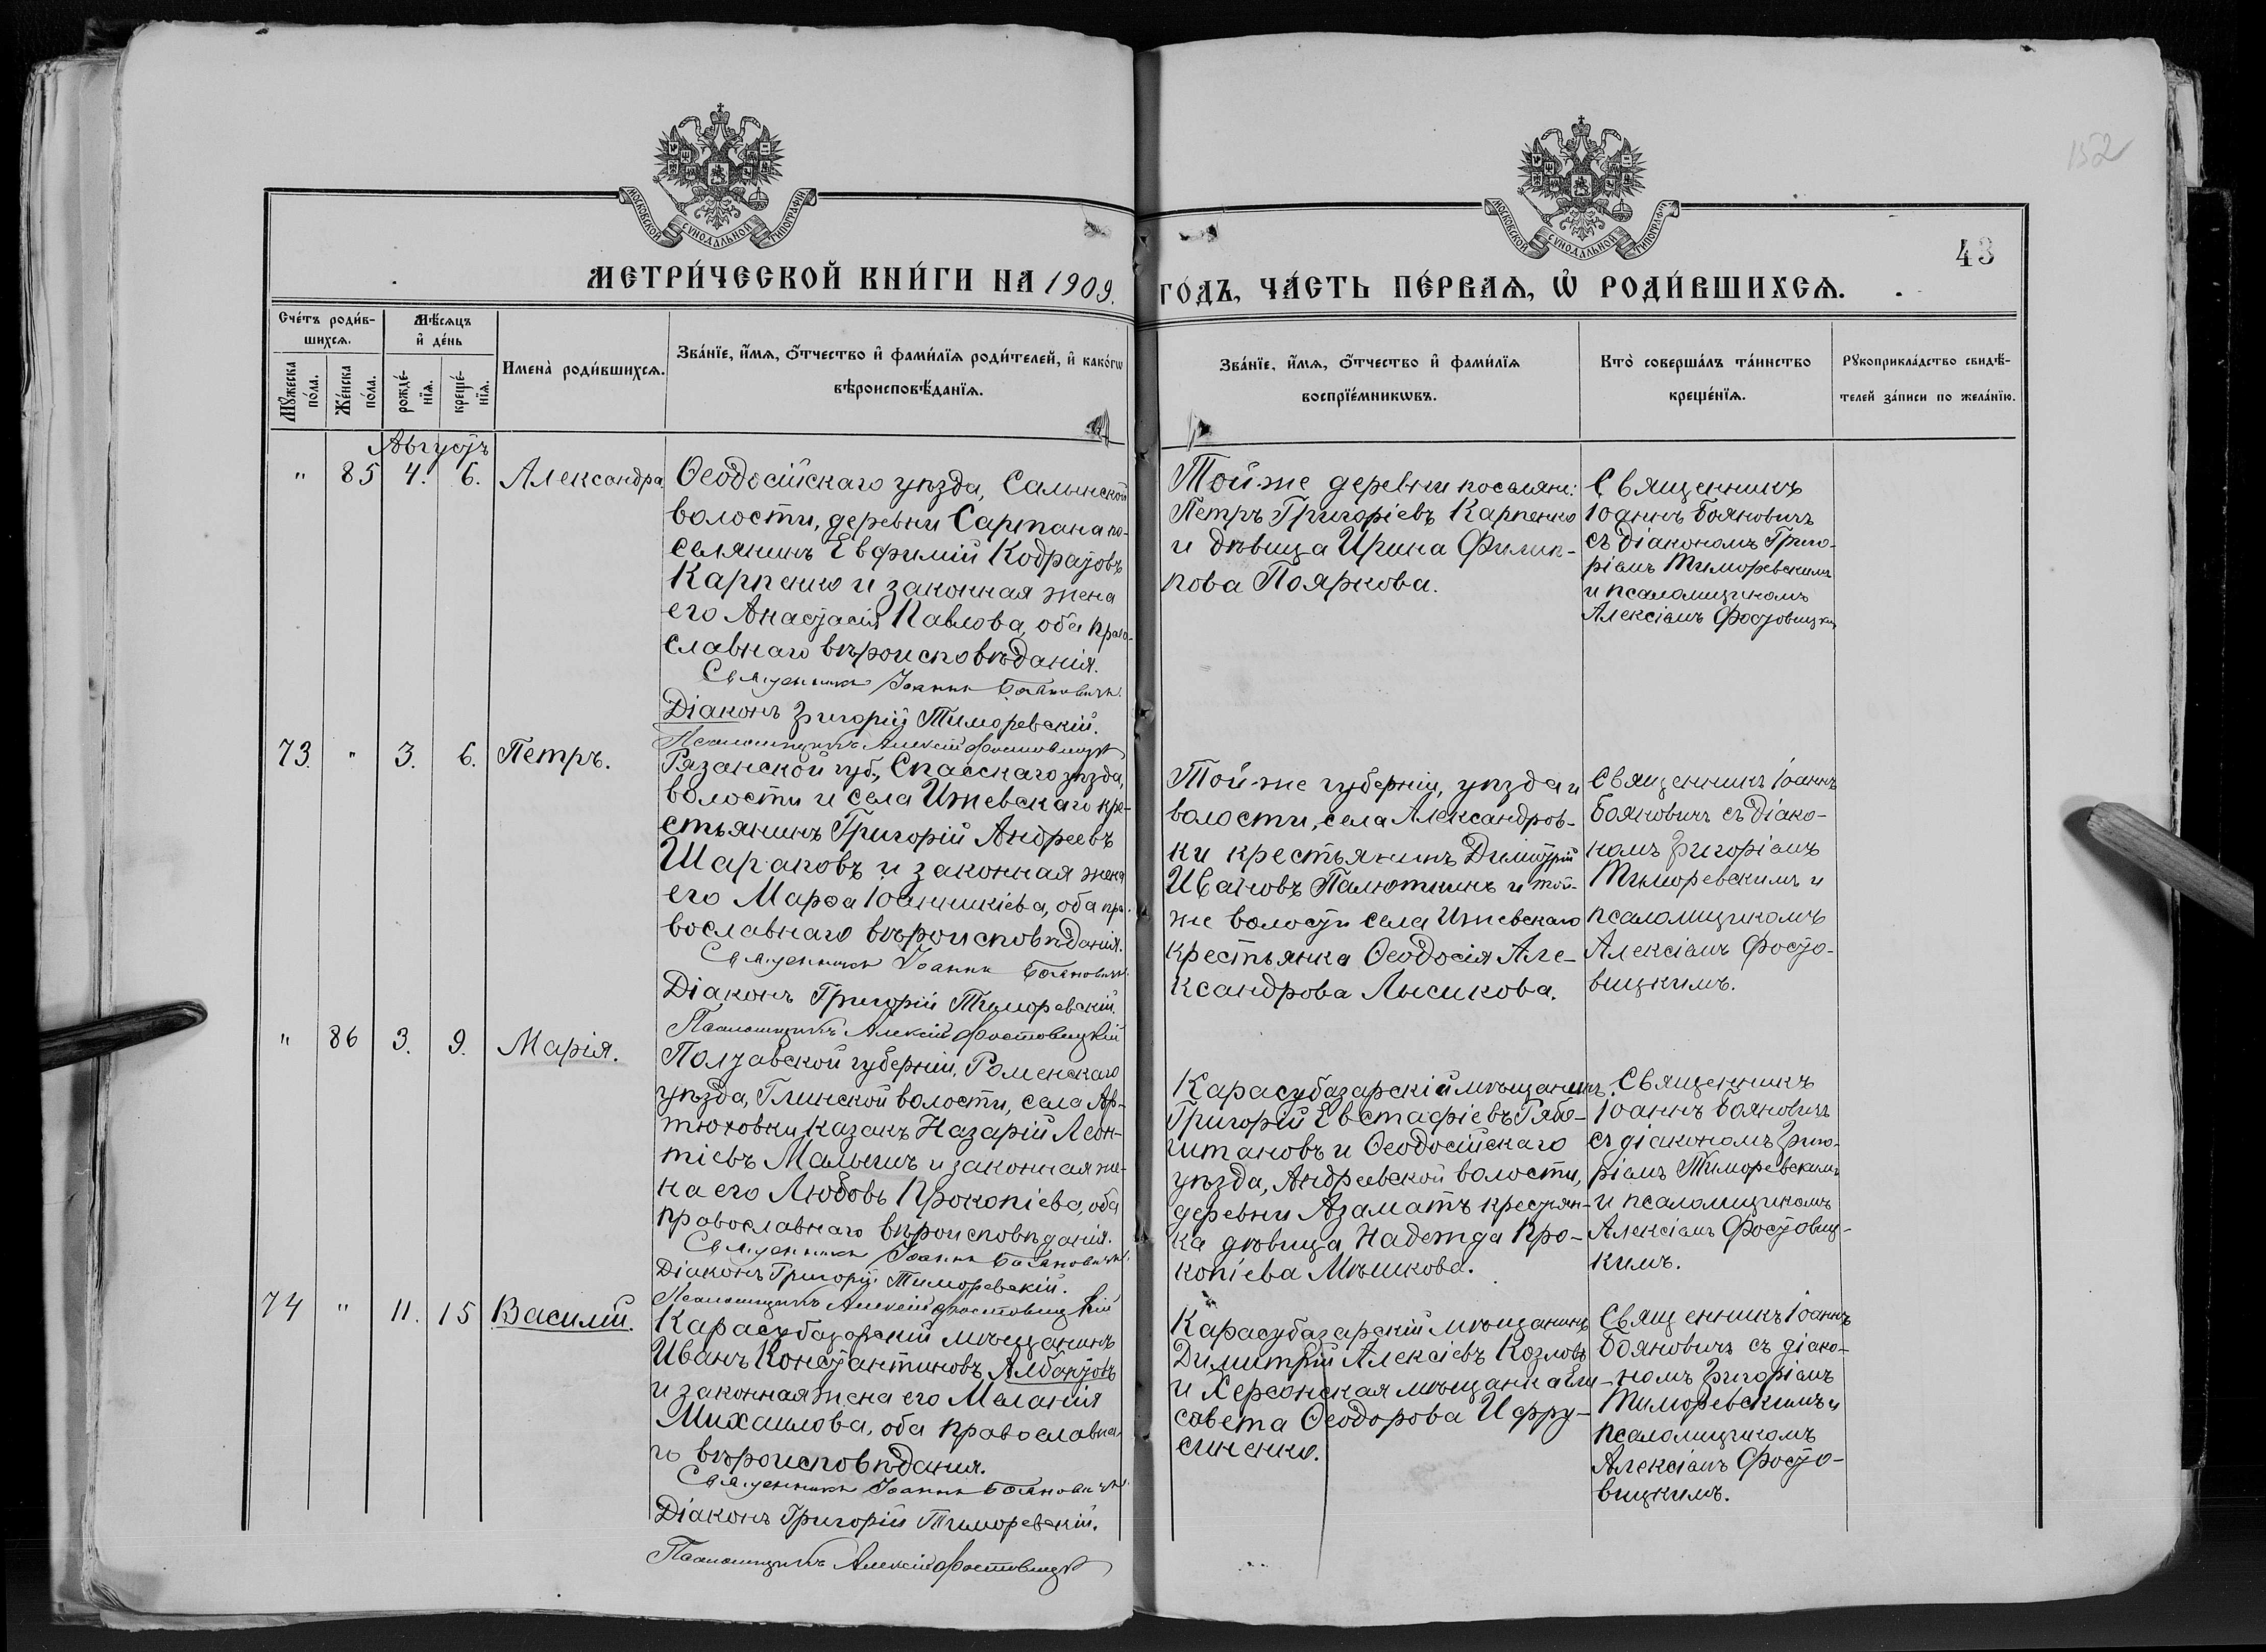 152
МОСКОВСКОЙ СУНОДАЛЬНОЙ ТИПОГРАФІИ
МОСКОВСКОЙ СУНОДАЛЬНОЙ ТИПОГРАФІИ
43
МЕТРИ́ЧЕСКОЙ КНИ́ГИ НА 1909.
ГО́ДЪ, ЧА́СТЬ ПЕ́РВАѦ, Ѡ҆ РОДИ́ВШИХСѦ.
Сче́тъ роди́в-
шихсѧ.
Мѣ́сѧцъ
и҆ де́нь
Мꙋ́жеска
по́ла.
Же́нска
по́ла.
рожде́-
нїѧ.
креще́-
нїѧ.
Имена̀ роди́вшихсѧ.
Зва́нїе, и҆́мѧ, ѻ҆́тчество и҆ фами́лїѧ роди́телей, и҆ како́гѡ
вѣроисповѣ́данїѧ.
Зва́нїе, и҆́мѧ, ѻ҆́тчество и҆ фами́лїѧ
воспрїе́мникѡвъ.
Кто̀ соверша́лъ та́инство
креще́нїѧ.
Рꙋкоприкла́дство свидѣ́-
телей за́писи по жела́нїю.
Августъ
" 85 4. 6. Александра
Ѳеодосійскаго уѣзда, Салынской
волости, деревни Сартана по-
селянинъ Евфимій Кодратовъ
Карпенко и законная жена
его Анастасія Павлова, оба право-
славнаго вѣроисповѣданія.
Священникъ Іоаннъ Бояновичъ.
Діаконъ Григорій Тиморевскій.
Псаломщикъ Алексій Фостовицк
Той-же деревни поселяне:
Петръ Григоріевъ Карпенко
и дѣвица Ирина Филип-
пова Пояркова.
Священникъ
Іоаннъ Бояновичъ
съ діакономъ Григо-
ріемъ Тиморевскимъ
и псаломщикомъ
Алексіемъ Фостовицким
73. " 3. 6. Петръ.
Рязанской губ., Спасскаго уѣзда,
волости и села Ижевскаго кре-
стьянинъ Григорій Андреевъ
Шараповъ и законная жена
его Марѳа Іоанникіева, оба пра-
вославнаго вѣроисповѣданія.
Священникъ Іоаннъ Бояновичъ.
Діаконъ Григорій Тиморевскій.
Псаломщикъ Алексій Фостовицкій
Той-же губерніи, уѣзда и
волости, села Александров-
ки крестьянинъ Димитрій
Ивановъ Палюткинъ и той-
же волости села Ижевскаго
крестьянка Ѳеодосія Але-
ксандрова Лысикова.
Священникъ Іоаннъ
Бояновичъ съ діако-
номъ Григоріемъ
Тиморевскимъ и
псаломщикомъ
Алексіемъ Фосто-
вицкимъ.
" 86 3. 9. Марія.
Полтавской губерніи, Роменскаго
уѣзда, Глинской волости, села Ар-
тюховки казакъ Назарій Леон-
тіевъ Малышъ и законная же-
на его Любовь Прокопіева, оба
православнаго вѣроисповѣданія.
Священникъ Іоаннъ Бояновичъ.
Діаконъ Григорій Тиморевскій.
Псаломщикъ Алексій Фостовицкій
Карасубазарскій мѣщанинъ
Григорій Евстафіевъ Рябо-
штановъ и Ѳеодосійскаго
уѣзда, Андреевской волости,
деревни Азаматъ крестьян-
ка дѣвица Надежда Про-
копіева Мѣшкова.
Священникъ
Іоаннъ Бояновичъ
съ діакономъ Григо-
ріемъ Тиморевскимъ
и псаломщикомъ
Алексіемъ Фостовиц-
кимъ.
74 " 11. 15 Василій.
Карасубазарскій мѣщанинъ
Иванъ Константиновъ Албантовъ
и законная жена его Меланія
Михаилова, оба православна-
го вѣроисповѣдания.
Священникъ Іоаннъ Бояновичъ.
Діаконъ Григорій Тиморевскій.
Псаломщикъ Алексій Фостовицк
Карасубазарскій мѣщанинъ
Димитрій Алексіевъ Козловъ
и Херсонская мѣщанка Ели-
савета Ѳеодорова Цфру-
синенко.
Священникъ Іоаннъ
Бояновичъ съ діако-
номъ Григоріемъ
Тиморевскимъ и
псаломщикомъ
Алексіемъ Фосто-
вицкимъ.